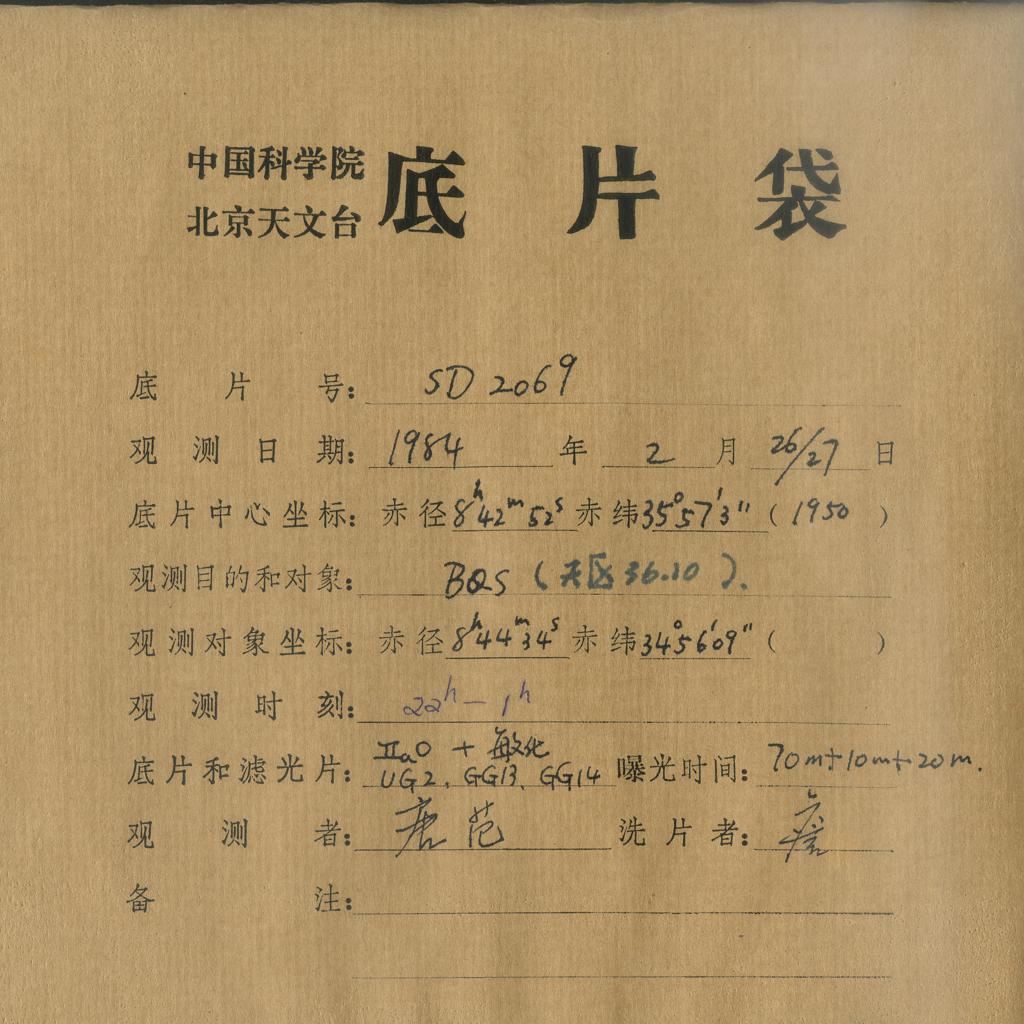 中国科学院
北京天文台
底片袋
底片号: SD 2069
观测日期: 1984 年 2 月 26/27 日
底片中心坐标: 赤径 8h42m52s 赤纬 35°57′3″ (1950)
观测目的和对象: BQS (天区36.10).
观测对象坐标: 赤径 8h44m34s 赤纬 34°56′09″ ( )
观测时刻: 22h—1h
底片和滤光片: IIaO + 敏化 UG2. GG13. GG14 曝光时间: 70m+10m+20m.
观测者: 范 洗片者:
备注: